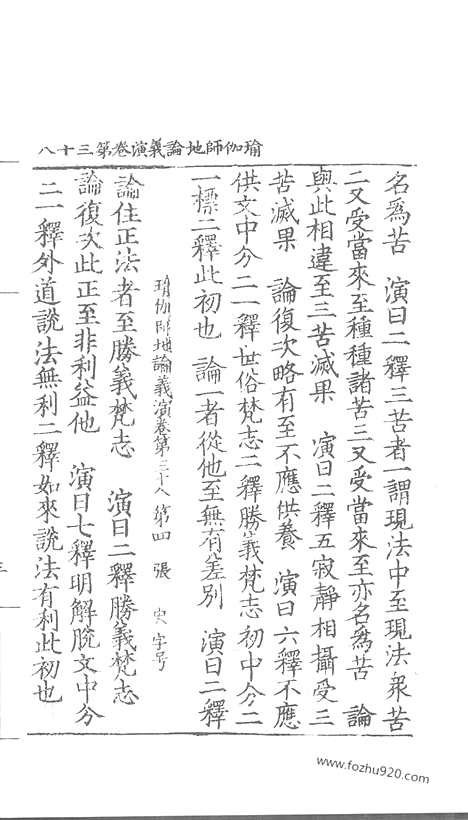 瑜伽師地論義演卷第三十八
名爲苦　演曰二釋三苦者一謂現法中至現法衆苦
二又受當來至種種諸苦三又受當來至亦名爲苦　論
與此相違至三苦滅果　演曰二釋五寂靜相攝受三
苦滅果　論復次略有至不應供養　演曰六釋不應
供文中分二一釋世俗梵志二釋勝義梵志初中分二
一標二釋此初也　論一者從他至無有差別　演曰二釋
瑜伽師地論義演卷第三十八　第四　張　字号
論住正法者至勝義梵志　演曰二釋勝義梵志
論復次此正至非利益他　演曰七釋明解脫文中分
二一釋外道說法無利二釋如來說法有利此初也
www.fozhu920.com